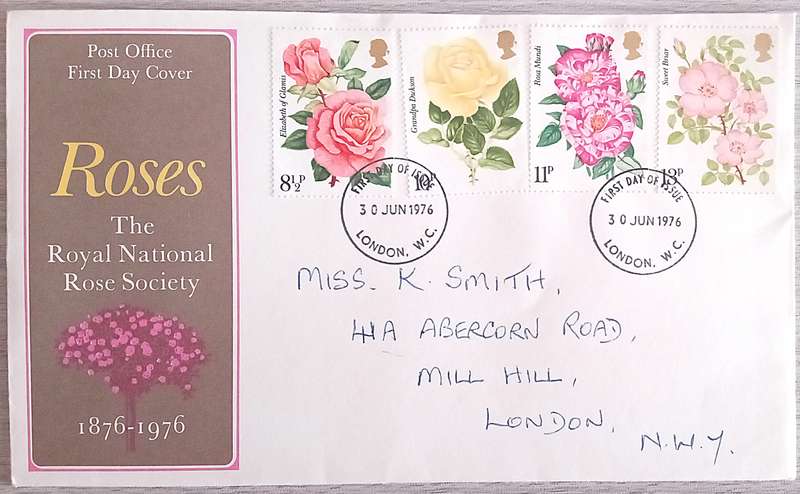 Post Office
First Day Cover
Roses
The
Royal National
Rose Society
1876-1976
Elizabeth of Glamis
8½P
Grandpa Dickson
10P
Rosa Mundi
11P
Sweet Briar
13P
FIRST DAY OF ISSUE
30 JUN 1976
LONDON, W.C.
FIRST DAY OF ISSUE
30 JUN 1976
LONDON, W.C.
MISS. K. SMITH,
44A ABERCORN ROAD,
MILL HILL,
LONDON,
N.W.7.